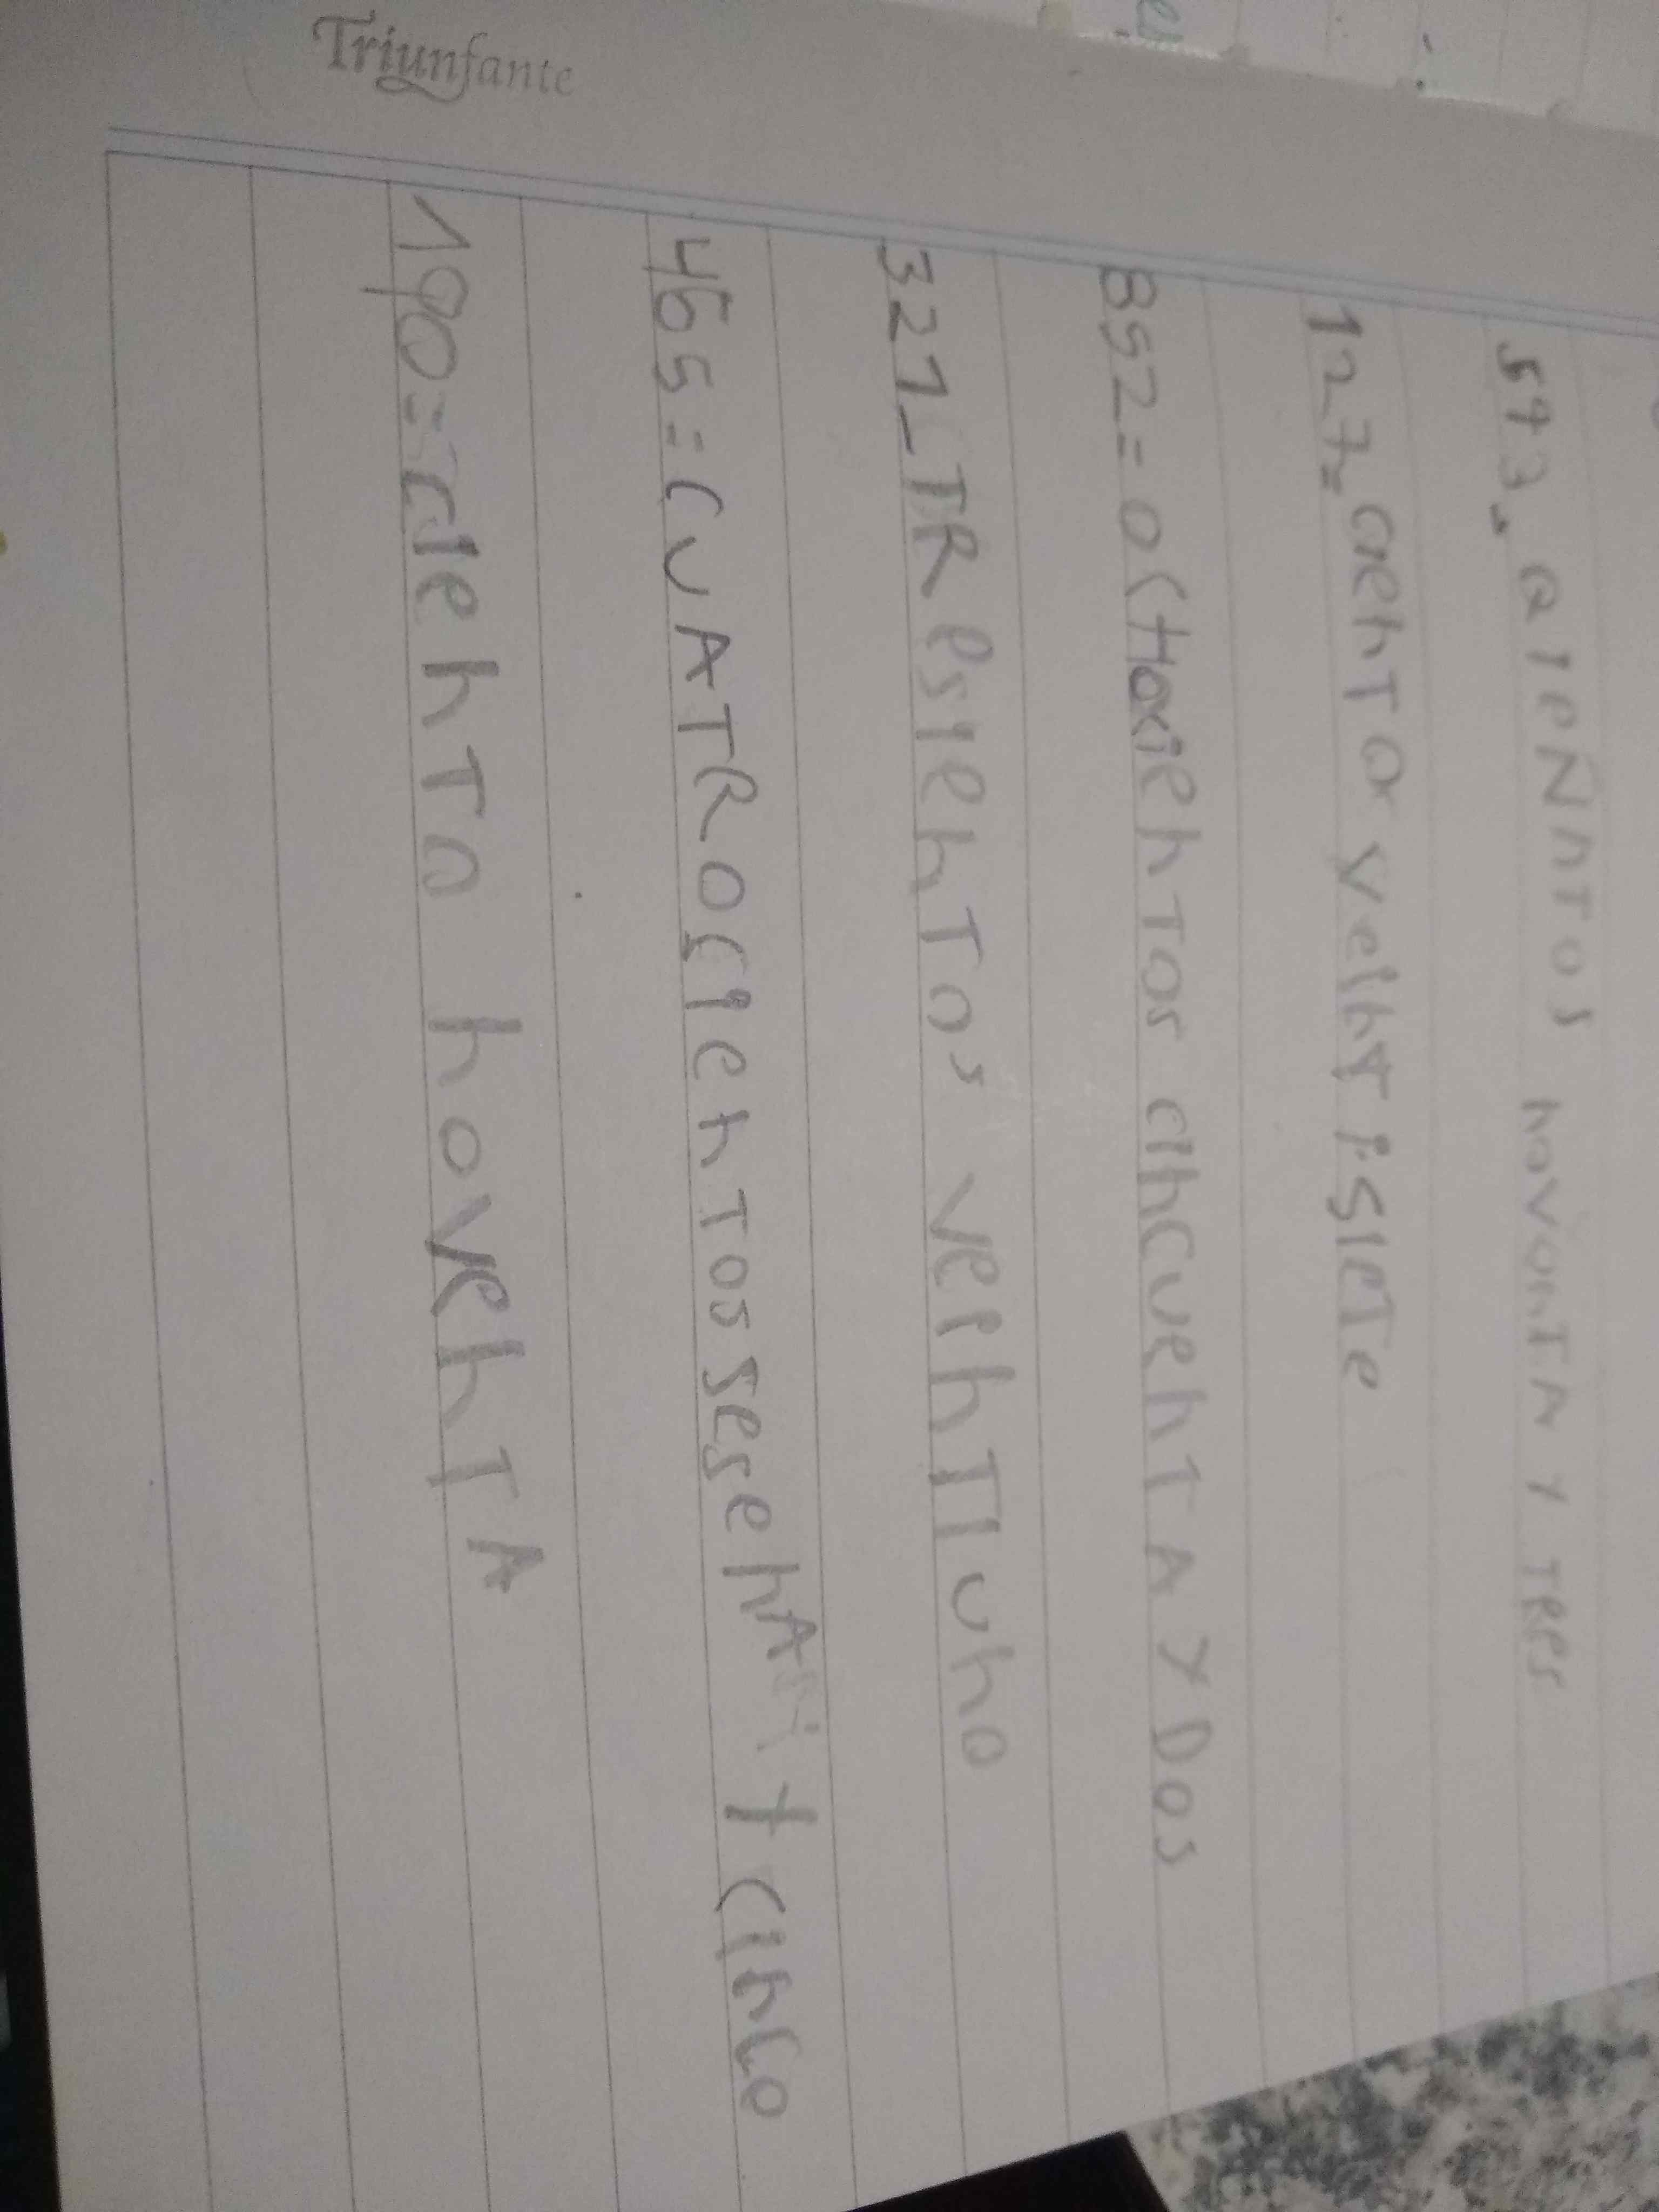 Triunfante
593. QieNhTos novonTA y TRes
127= cienTos veinTisieTe
852= o(Hoxiehtos cihcuehTA y Dos
321_TResiehTos veihTIuho
465=(uATRo(iehTossesehA y (ihco
190=ciehTo hovehTA